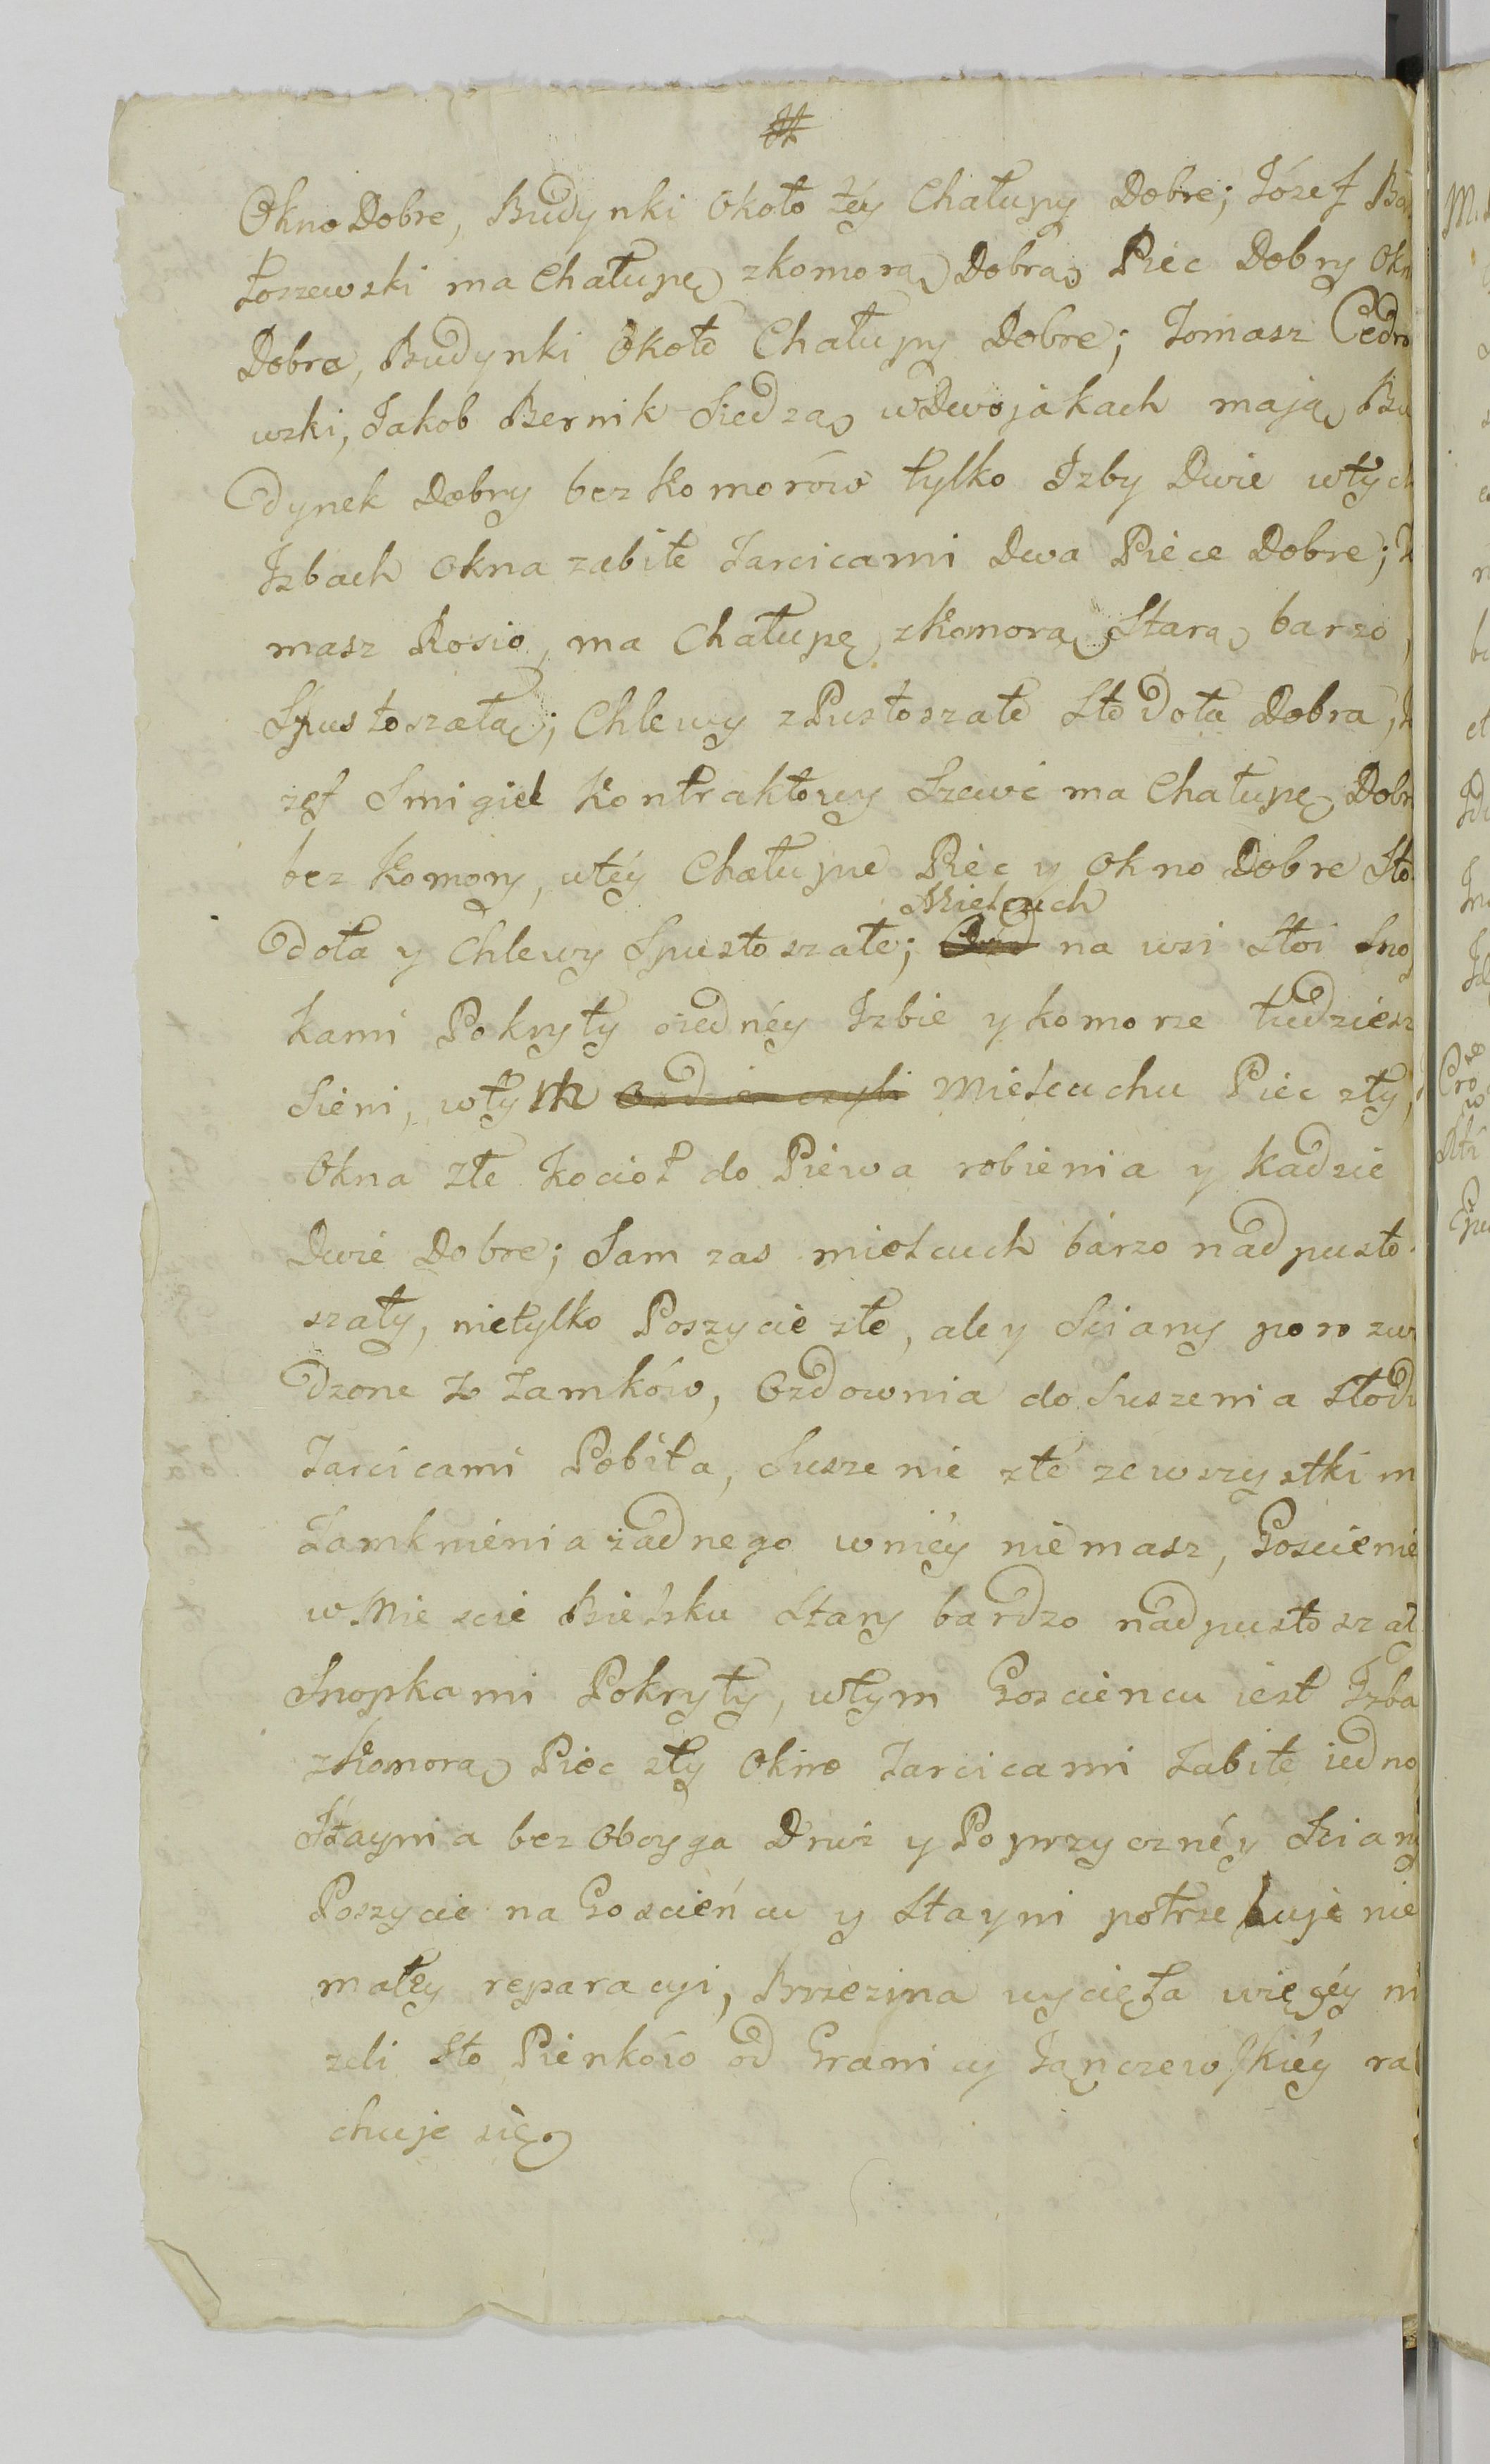 Okno Dobre, Budynki około téy Chałupy Dobre; Józef
toszewski ma Chałupę zkomorą Dobrą Piéc Dobry Okn
Dobre, Budynki Około Chałupy Dobre; Tomasz Cedro
wski, Jakob Bernik Siedzą wDwojakach mają Bu
dynek Dobry bez komorów tylko Izby Dwie wtych
Izbach Okna zabite Tarcicami Dwa Piéce Dobre;
masz Rosio, ma Chałupę zkomorą Starą barzo
Spustoszałą; Chlewy zPustoszałe Stodoła Dobra,
zef Smigiel Kontraktowy Szewc ma Chałupę Dobr
bez Komory, wtéy Chałupie Piéc y Okno Dobre Sto
Mielcuch
doła y Chlewy Spustoszałe; na wsi Stoi Sno
kami Pokryty oiednéy Izbie y komorze tudziesz
Sieni, wtym Ozdzie czyli Mielcuchu Piéc zły,
Okna złe Kocioł do Piéwa robienia y kadzie
Dwie Dobre; Sam zas mielcuch bárzo nadpusto-
szały, nietylko Poszycie złe, ale y Sciany porozw
dzone z zamków, Ozdownia do Suszenia Słodu
Tarcicami Pobita, Suszenie złe ze wszystkim
Zamkniénia żadnego wniéy niémasz, Gosciniéc
w Miescie Bielsku Stary bardzo nadpustoszał
Snopkami Pokryty, wtym Goscieńcu iest Izba
zKomorą Piéc zły Okno Tarcicami Zabite iedno
Staynia bez Obcyga Drwi y Poprzyczney Scian
Poszycie na Goscieńcu y Stayni potrzebuje nie
małey reparacyi, Brzezina wycięta więcéy ni
zeli Sto Pienków od Granicy Janczewskiéy ra
chuje się